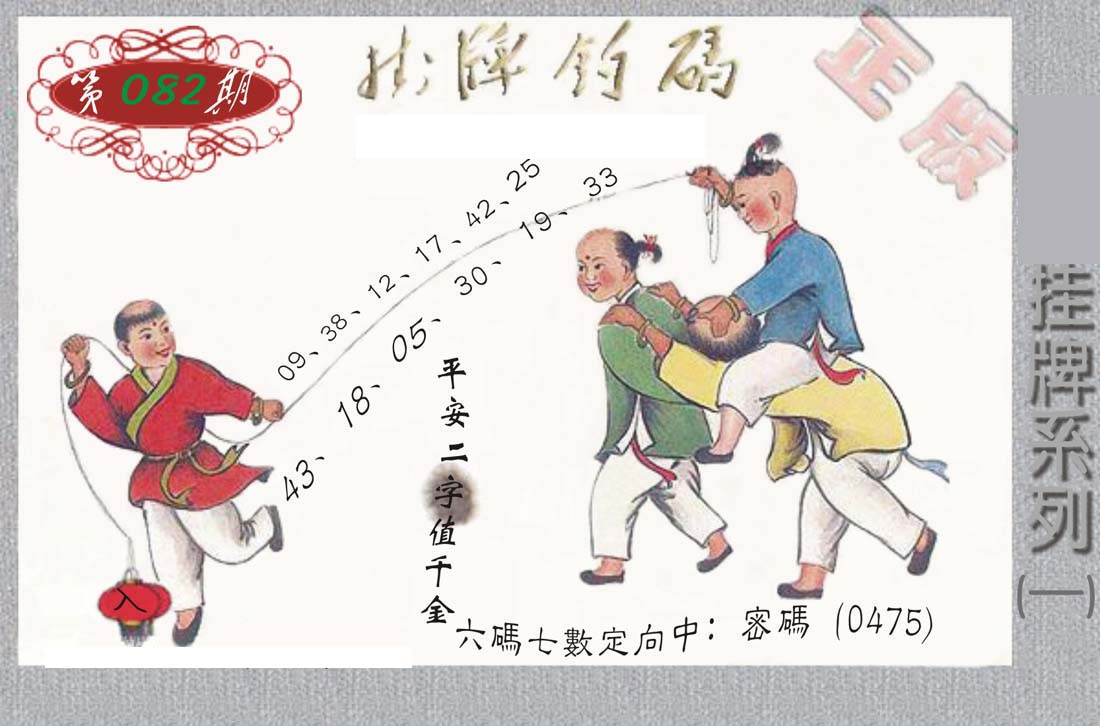 第082期
掛牌釣碼
正版
09、38、12、17、42、25
43、18、05、30、19、33
平安二字值千金
入
六碼七數定向中：密碼(0475)
挂牌系列(一)